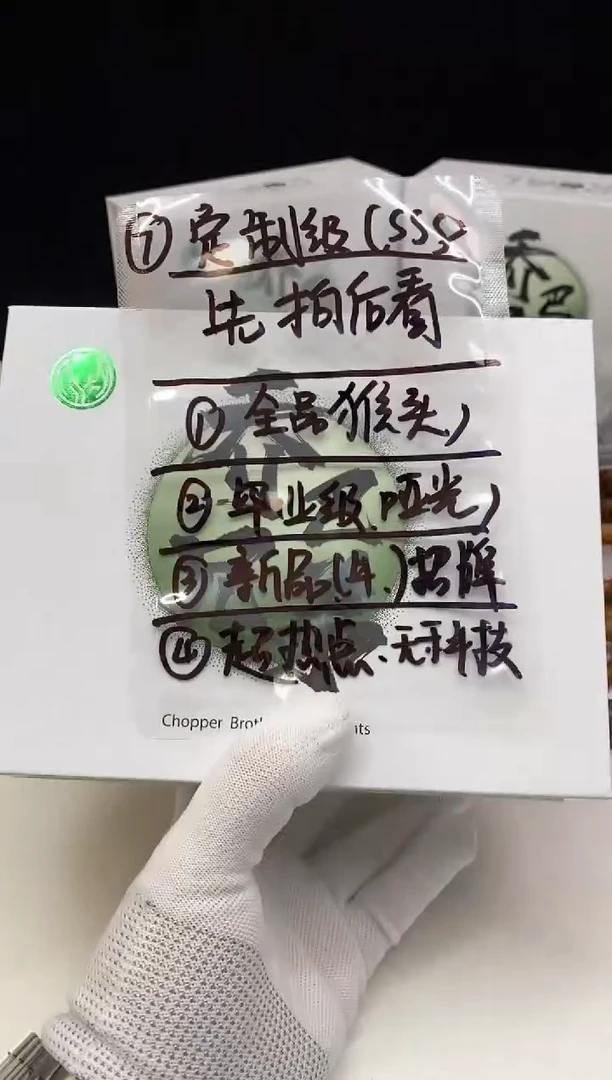 ⑦定制级(SSS)
先拍后看
①全品猴头
②毕业级.哑光
③新品(4.)品牌
④起热点、无科技
Chopper Brot
nts
乔巴